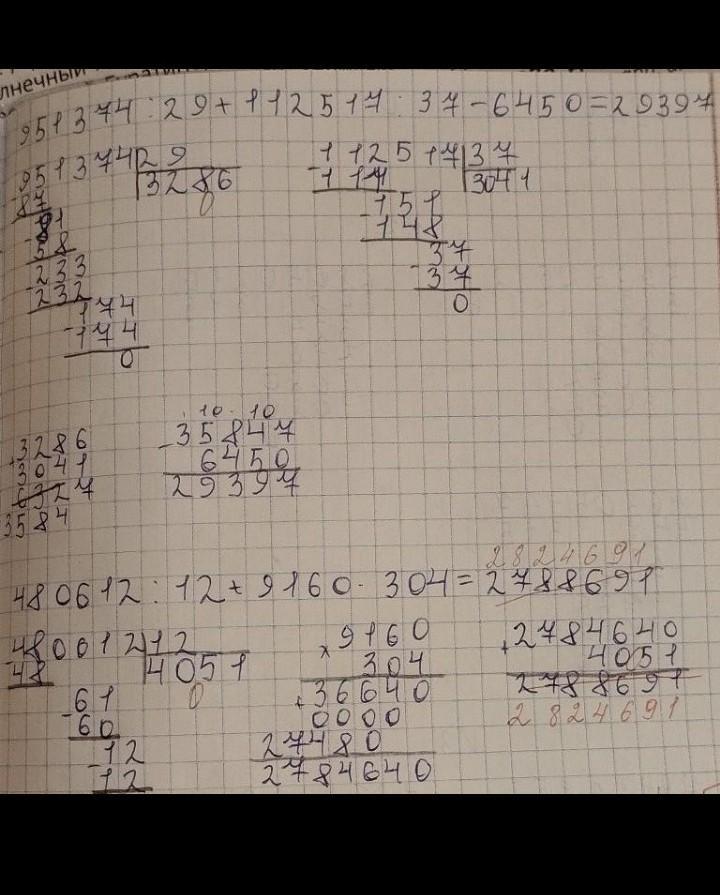 лнечный
951374 : 29 + 112517 : 37 - 6450 = 29397
951374 29
3286
0
87
81
58
233
232
174
174
0
112517 37
111 3041
151
148
37
37
0
+3286
3041
6327
3584
10 10
-35847
6450
29397
2824691
480612 : 12 + 9160 · 304 = 2788691
480612 12
48 4051
0
-61
60
-12
12
×9160
304
+36640
0000
27480
2784640
+2784640
4051
2788691
2824691